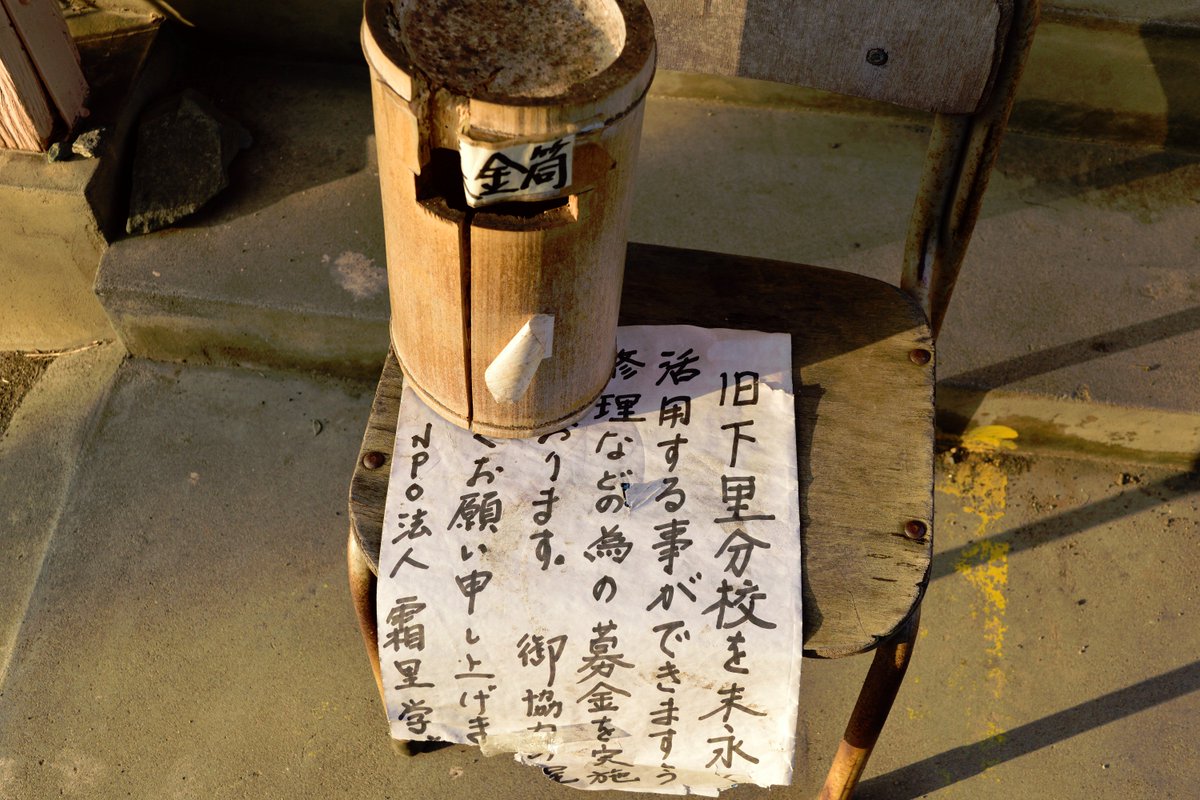 金筒
旧下里分校を末永
活用する事ができますう
修理などの為の募金を実施
おります。 御協力
くお願い申し上げき
NPO法人 霜里学